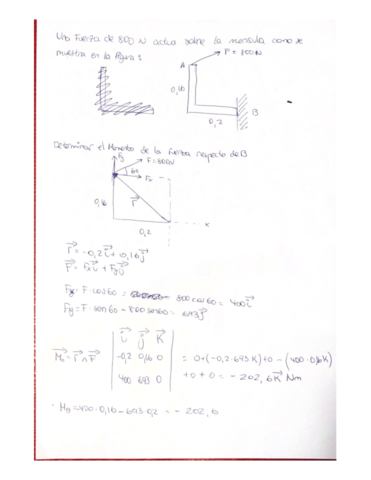 Una Fuerza de 800 N actua sobre la mensula como se
muestra en la figura 1
F = 800N
A
0,16
B
0,2
Determinar el Momento de la Fuerza respecto de B
Fy
F=800N
60
Fx
0,16
r
x
0,2
r = -0,2 i + 0,16 j
F = Fx i + Fy j
F cos60 = 800 cos60 = 400 i
Fy = F sen60 = 693 j
i j K
M = r ∧ F = -0,2 0,16 0 = 0+(-0,2·693 K)+0 - (400·0,16K)
400 693 0 +0 +0 = -202,6 K Nm
= 400·0,16 - 693·0,2 = -202,6